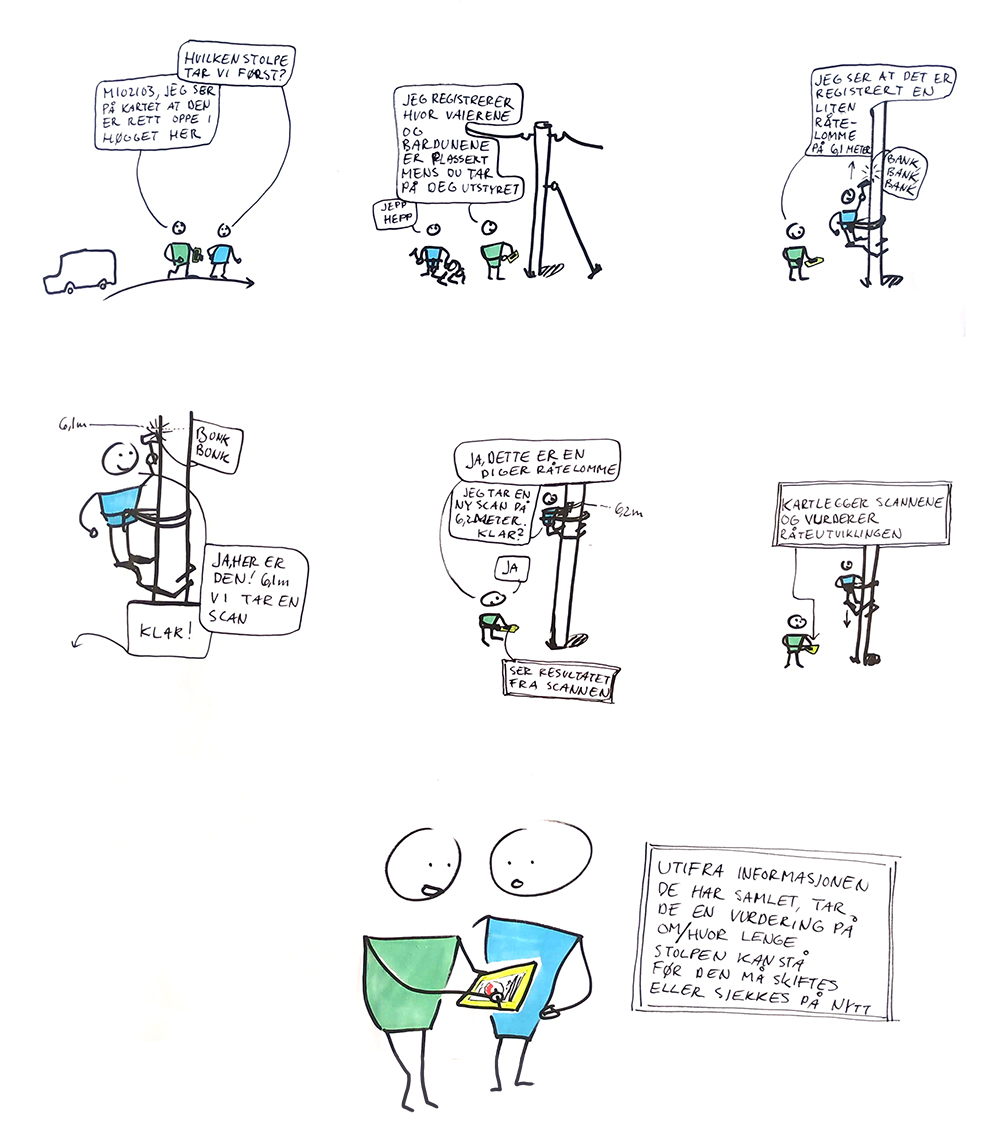 HVILKEN STOLPE
TAR VI FØRST?
M102103, JEG SER
PÅ KARTET AT DEN
ER RETT OPPE I
HØGGET HER
JEG REGISTRERER
HVOR VAIERENE
OG
BARDUNENE
ER PLASSERT
MENS DU TAR
PÅ DEG UTSTYRET
JEPP
HEPP
JEG SER AT DET ER
REGISTRERT EN
LITEN
RÅTE-
LOMME
PÅ 6,1 METER
BANK,
BANK,
BANK
6,1m
BONK
BONK
JA, HER ER
DEN! 6,1m
VI TAR EN
SCAN
KLAR!
JA, DETTE ER EN
DIGER RÅTELOMME
JEG TAR EN
NY SCAN PÅ
6,2 METER.
KLAR?
6,2m
JA
SER RESULTATET
FRA SCANNEN
KARTLEGGER SCANNENE
OG VURDERER
RÅTEUTVIKLINGEN
UTIFRA INFORMASJONEN
DE HAR SAMLET, TAR
DE EN VURDERING PÅ
OM/HVOR LENGE
STOLPEN KAN STÅ
FØR DEN MÅ SKIFTES
ELLER SJEKKES PÅ NYTT